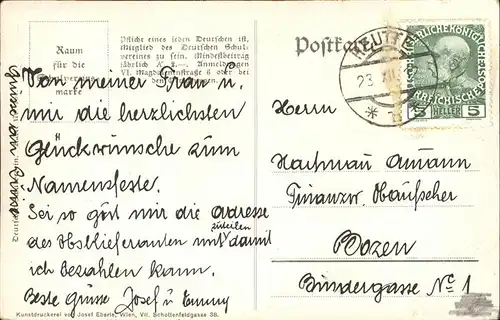 Raum
für die
marke
Pflicht eines jeden Deutschen ist,
Mitglied des Deutschen Schul-
vereines zu sein. Mindestbeitrag
jährlich K 2.—. Anmeldungen
VI. Magdalenenstraße 6 oder bei
Postkarte
REUTTE
23
5 HELLER 5
Von meiner Frau u.
mir die herzlichsten
Glückwünsche zum
Namensfeste.
Sei so gut mir die Adresse
des Obstlieferanten mit zuteilen damit
ich bezahlen kann.
Beste Grüsse Josef u Emmy
Herrn
Hartmann Amann
Finanzw. Oberaufseher
Bozen
Bindergasse No 1
Kunstdruckerei von Josef Eberle, Wien, VII. Schottenfeldgasse 38.